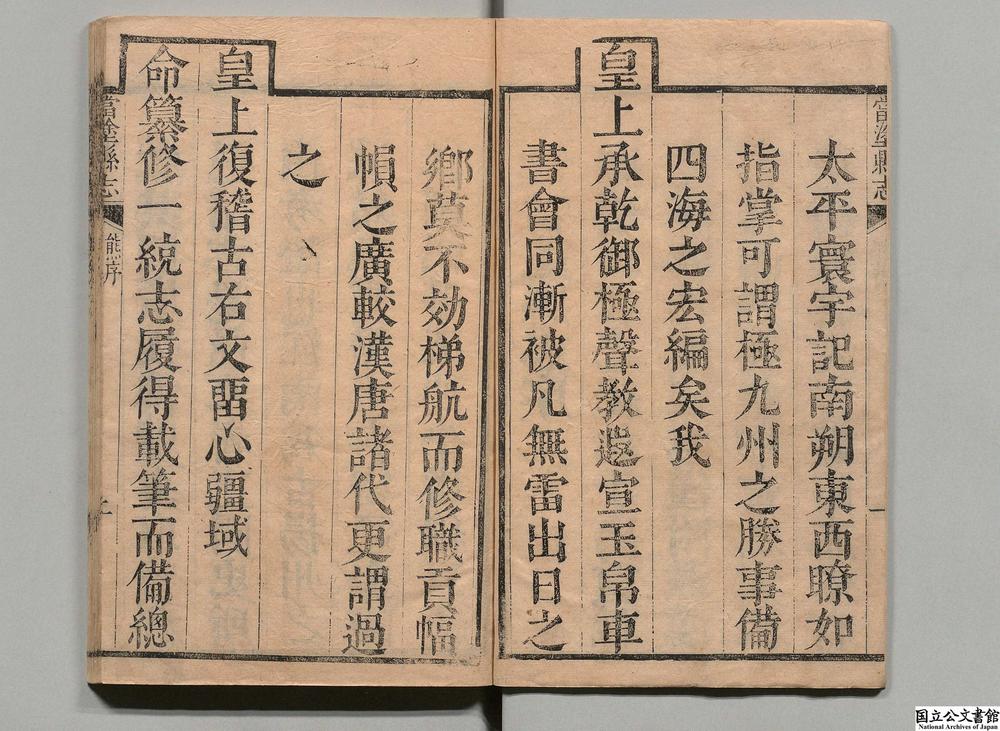 當塗縣志
太平寰宇記南朔東西瞭如
指掌可謂極九州之勝事備
四海之宏編矣我
皇上承乾御極聲教遐宣玉帛車
書會同漸被凡無雷出日之
鄉莫不効梯航而修職貢幅
幀之廣較漢唐諸代更謂過
之
皇上復稽古右文畱心疆域
命纂修一統志履得載筆而備總
當塗縣志
序
国立公文書館
National Archives of Japan